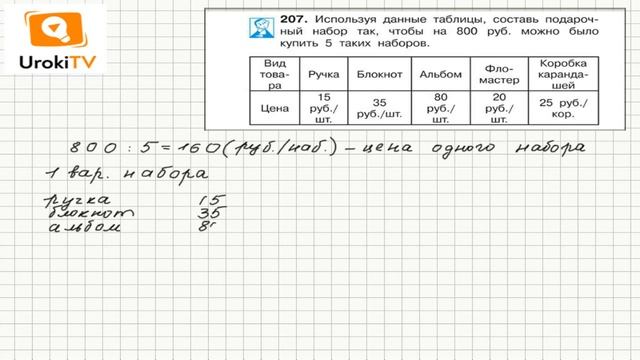 UrokiTV
207. Используя данные таблицы, составь подароч-
ный набор так, чтобы на 800 руб. можно было
купить 5 таких наборов.
Вид това-ра Ручка Блокнот Альбом Фло-мастер Коробка каранда-шей
Цена 15 руб./шт. 35 руб./шт. 80 руб./шт. 20 руб./шт. 25 руб./кор.
800 : 5 = 160 (руб./наб.) – цена одного набора
1 вар. набора
ручка 15
блокнот 35
альбом 8